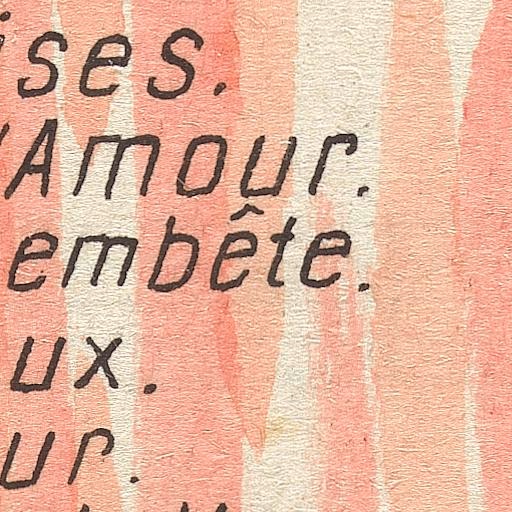 ises.
'Amour.
embête.
ux.
ur.